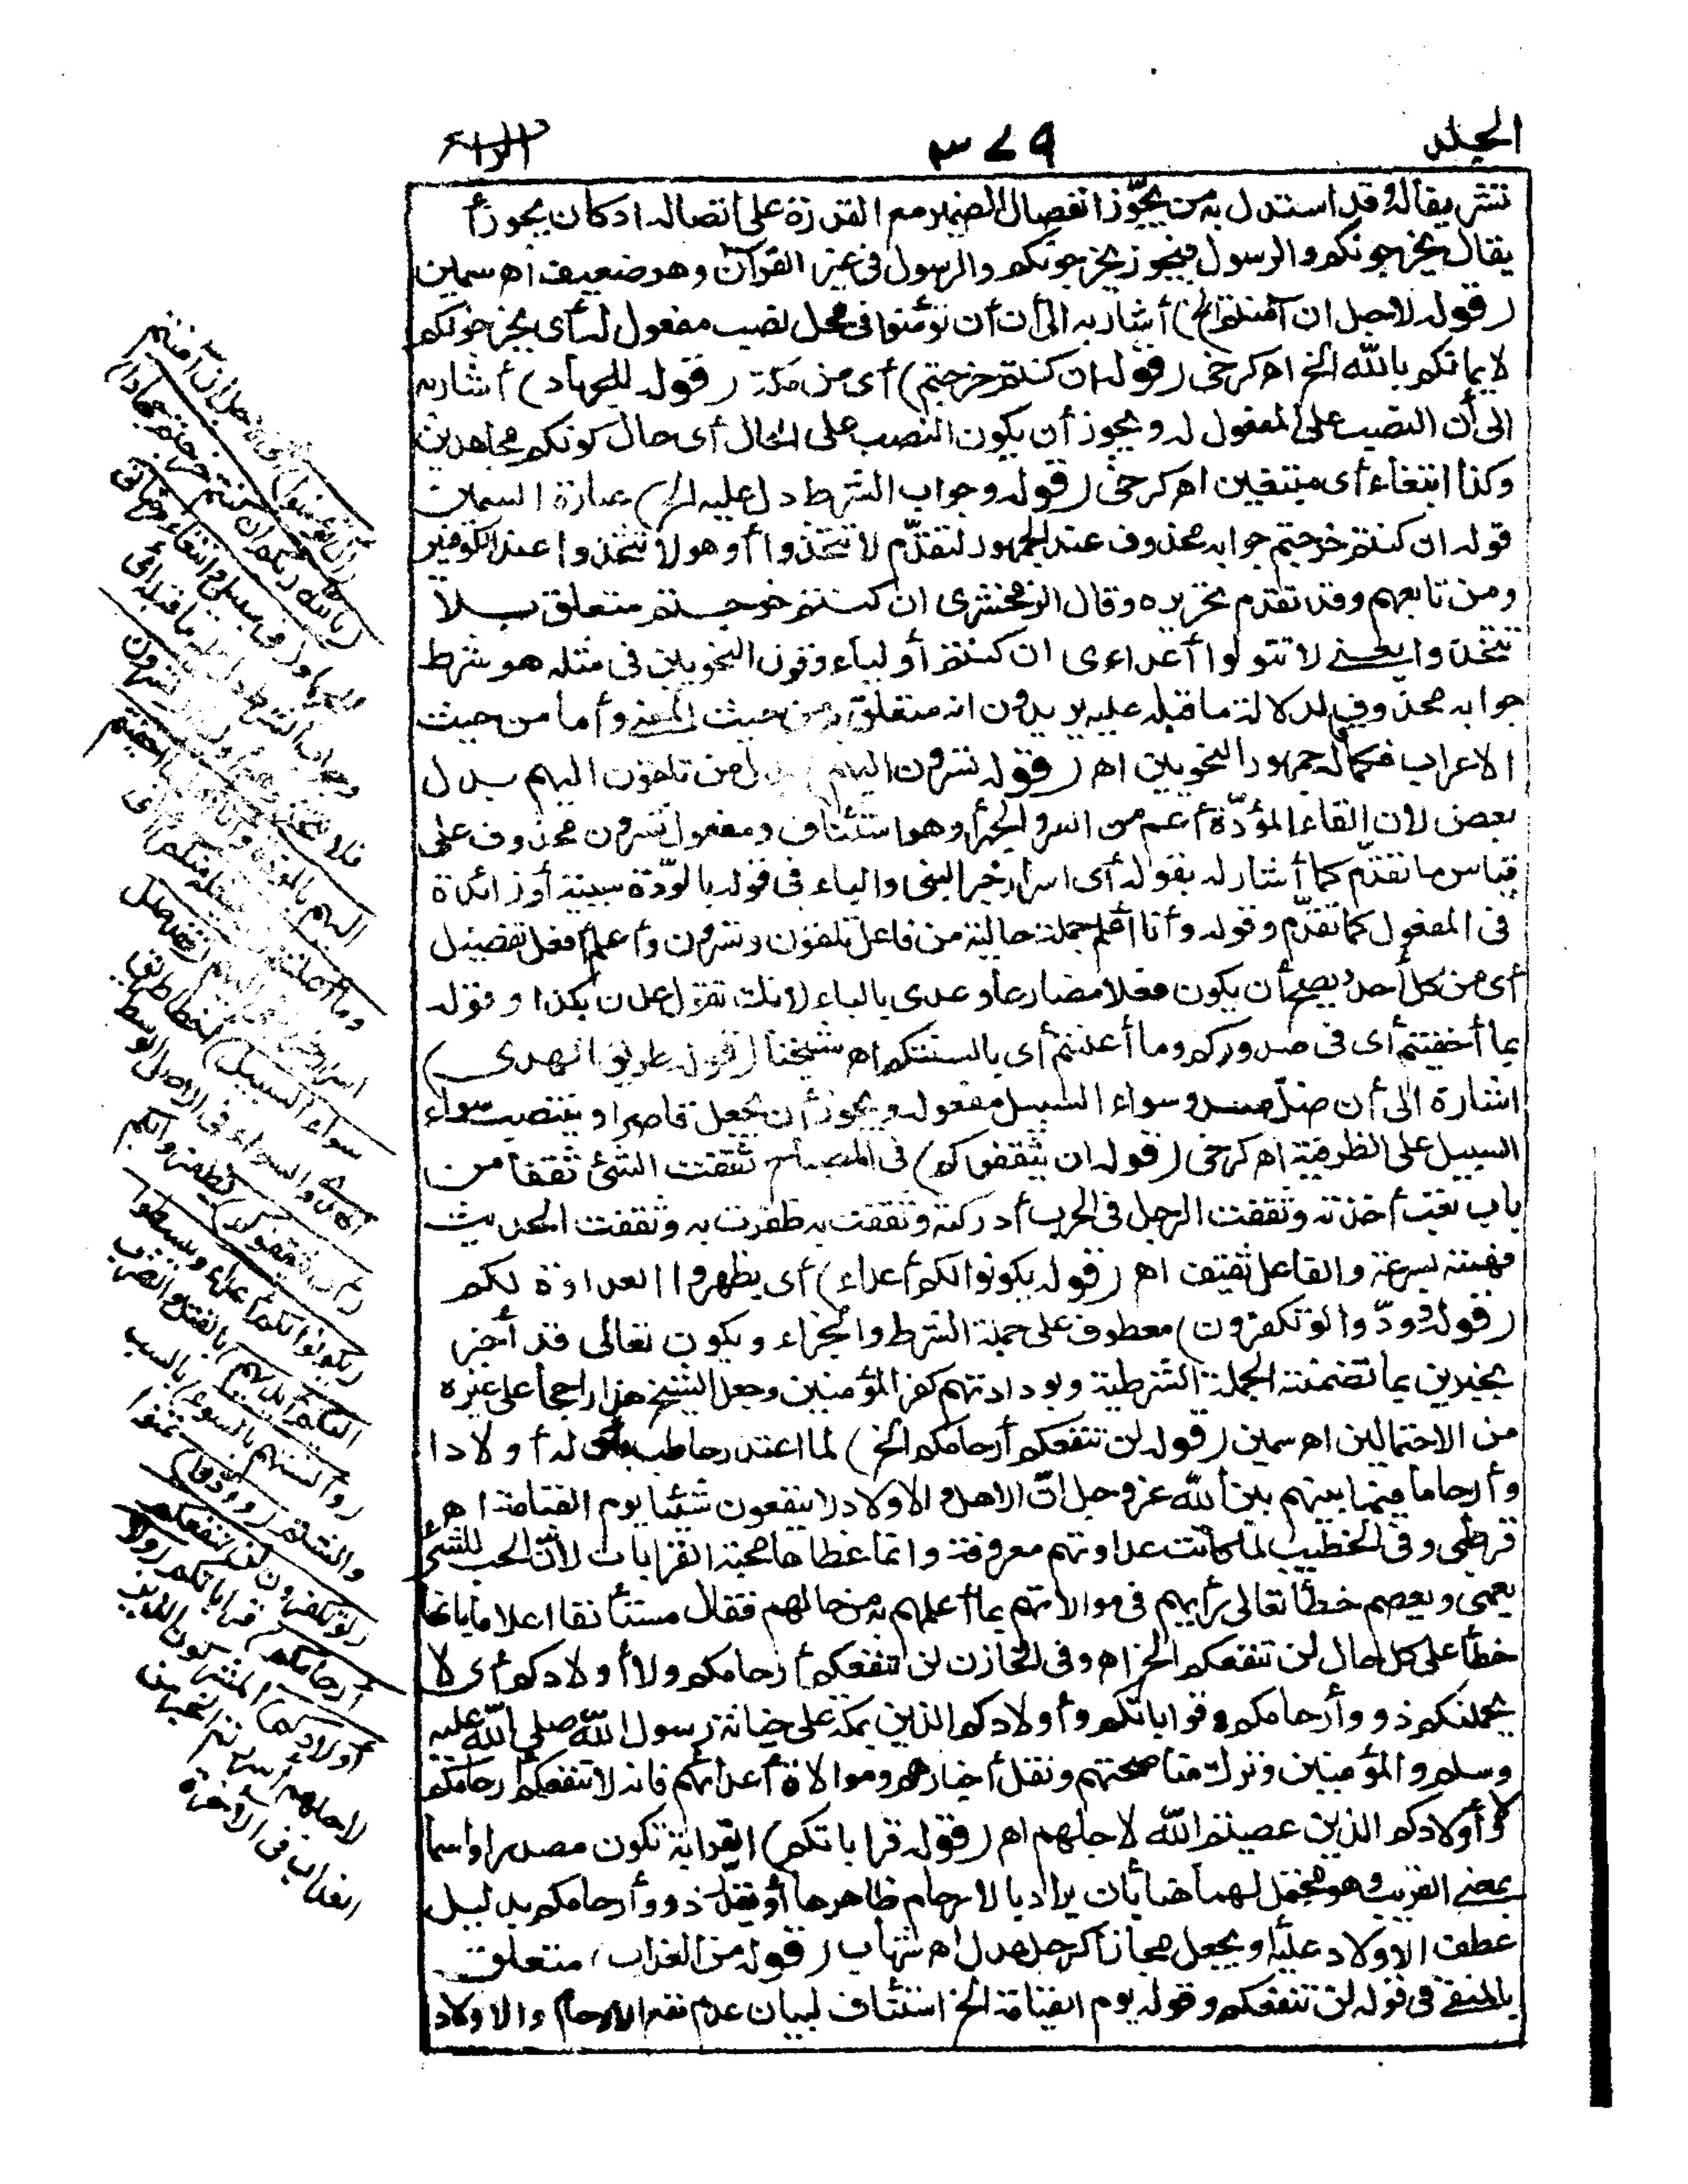 الجلد ٣٧٩ الرابع
تشريفا له وقد استدل به من يجوّز انفصال الضمير مع القدرة على اتصاله اذ كان يجوز أ
يقال يخرجونكم والرسول فيجوز يخرجونكم والرسول فى غير القرآن وهو ضعيف اهـ سمين
(قوله لاجل ان آمنتم الخ) أشار به الى أن أن تؤمنوا فى محل نصب مفعول له أى يخرجونكم
لايمانكم بالله الخ اهـ كرخى (قوله ان كنتم خرجتم) أى من مكة (قوله للجهاد) أشار به
الى أن النصب على المفعول له ويجوز أن يكون النصب على الحال أى حال كونكم مجاهدين
وكذا ابتغاء أى مبتغين اهـ كرخى (قوله وجواب الشرط دل عليه الخ) عبارة السمين
قوله ان كنتم خرجتم جوابه محذوف عند الجمهور لتقدّم لا تتخذوا أو هو لا تتخذوا عند الكوفيين
ومن تابعهم وقد تقدم تحريره وقال الزمخشرى ان كنتم خرجتم متعلق بلا
تتخذوا يعنى لا تتولوا أعدائى ان كنتم أوليائى وقول النحويين فى مثله هو شرط
جوابه محذوف لدلالة ما قبله عليه يريدون انه متعلق به من حيث المعنى وأما من حيث
الاعراب فكما قال جمهور النحويين اهـ (قوله تسرون اليهم) بدل من تلقون اليهم بدل
بعض لان القاء المودّة أعم من السر والجهر أو هو استئناف ومفعول تسرون محذوف على
قياس ما تقدّم كما أشار له بقوله أى اسرار خبر النبى والباء فى قوله بالمودّة سببية أو زائدة
فى المفعول كما تقدّم وقوله وأنا أعلم جملة حالية من فاعل تلقون وتسرون وأعلم أفعل تفضيل
أى من كل أحد ويصح أن يكون فعلا مضارعا وعدى بالباء لانك تقول علمت بكذا وقوله
بما أخفيتم أى فى صدوركم وما أعلنتم أى بألسنتكم اهـ شيخنا (قوله طريق الهدى)
اشارة الى أن ضلّ متعد وسواء السبيل مفعوله ويجوز أن يجعل قاصرا وينتصب سواء
السبيل على الظرفية اهـ كرخى (قوله ان يثقفوكم) فى المصباح ثقفت الشئ ثقفا من
باب تعب أخذته وثقفت الرجل فى الحرب أدركته وثقفت به ظفرت به وثقفت الحديث
فهمته بسرعة والفاعل ثقيف اهـ (قوله يكونوا لكم أعداء) أى يظهروا العداوة لكم
(قوله وودّوا لو تكفرون) معطوف على جملة الشرط والجزاء ويكون تعالى قد أخبر
بخبرين بما تضمنته الجملة الشرطية وبودادتهم كفر المؤمنين وجعل الشيخ هذا راجحا على غيره
من الاحتمالين اهـ سمين (قوله لن تنفعكم أرحامكم الخ) لما اعتذر حاطب بأن له أولادا
وأرحاما فيما بينهم بين الله عز وجل انّ الاهل والاولاد لا ينفعون شيئا يوم القيامة اهـ
قرطبى وفى الخطيب لما كانت عداوتهم معروفة وانما غطاها محبة القرابات لانّ الحب للشئ
يعمى ويصم خطأ تعالى رأيهم فى موالاتهم بما أعلمهم به من حالهم فقال مستأنفا اعلاما بانها
خطأ على كل حال لن تنفعكم الخ اهـ وفى الخازن لن تنفعكم أرحامكم ولا أولادكم أى لا
يحملنكم ذوو أرحامكم وقراباتكم وأولادكم الذين بمكة على خيانة رسول الله صلى الله عليه
وسلم والمؤمنين وترك مناصحتهم ونقل أخبارهم وموالاة أعدائهم فانه لا تنفعكم أرحامكم
ولا أولادكم الذين عصيتم الله لاجلهم اهـ (قوله قراباتكم) القرابة تكون مصدرا واسما
بمعنى القريب وهو محتمل لهما هنا بأن يراد بالارحام ظاهرها أو يقدّر ذوو أرحامكم بدليل
عطف الاولاد عليه أو يجعل مجازا كرجل عدل اهـ شهاب (قوله من العذاب) متعلق
بالمنفى فى قوله لن تنفعكم وقوله يوم القيامة الخ استئناف لبيان عدم نفع الارحام والاولاد
(أن تؤمنوا) أى لاجل أن آمنتم
(بالله ربكم ان كنتم خرجتم جهادا)
للجهاد (فى سبيلى وابتغاء مرضاتى)
وجواب الشرط دل عليه ما قبله أى
فلا تتخذوهم أولياء (تسرون
اليهم بالمودة وأنا أعلم بما أخفيتم
وما أعلنتم ومن يفعله منكم) أى
اسرار خبر النبى اليهم (فقد ضل
سواء السبيل) أخطأ طريق
الهدى والسواء فى الاصل الوسط
(ان يثقفوكم) يظفروا بكم
(يكونوا لكم أعداء ويبسطوا
اليكم أيديهم) بالقتل والضرب
(وألسنتهم بالسوء) بالسب
والشتم (وودّوا) تمنوا
(لو تكفرون لن تنفعكم
أرحامكم) قراباتكم (ولا
أولادكم) المشركون الذين
لاجلهم أسررتم الخبر من
العذاب فى الآخرة